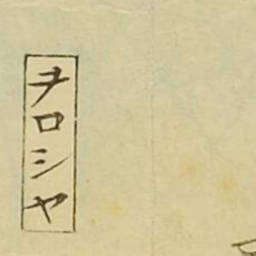 ヲロシヤ